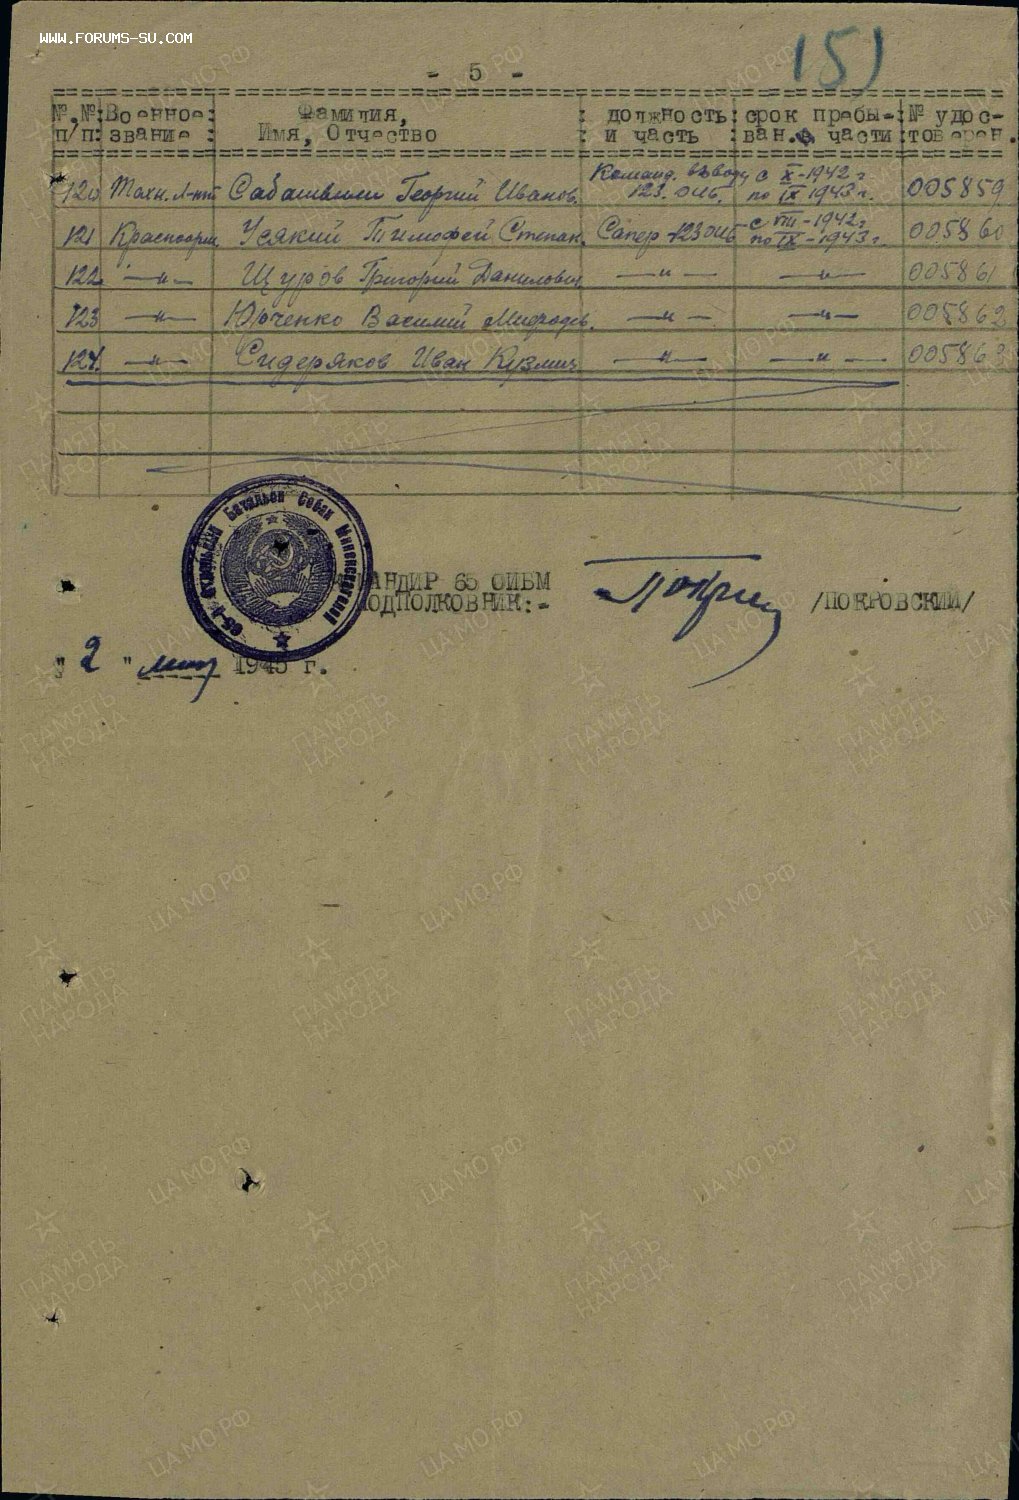 WWW.FORUMS-SU.COM
151
- 5 -
№.№ п/п : Военное звание : Фамилия, Имя, Отчество : должность и часть : срок пребыван. в части : № удостоверен.
120 Техн. л-нт Сабашвили Георгий Иванов. Команд. взвода 123 ОИБ. с X-1942 г по IX 1943 г. 005859
121 Красноарм. Усякий Тимофей Степан. Сапер 123 ОИБ с VIII-1942 г. по IX-1943 г. 005860
122 —"— Щуров Григорий Данилович —"— —"— 005861
123 —"— Юрченко Василий —"— —"— 005862
124. —"— Сидеряков Иван Кузмич —"— —"— 005863
65-й Отдельный Батальон Собак Миноискателей
АНДИР 65 ОИБМ
ПОДПОЛКОВНИК:- /ПОКРОВСКИЙ/
" 2 " 1945 г.
ПАМЯТЬ НАРОДА
ЦА МО РФ